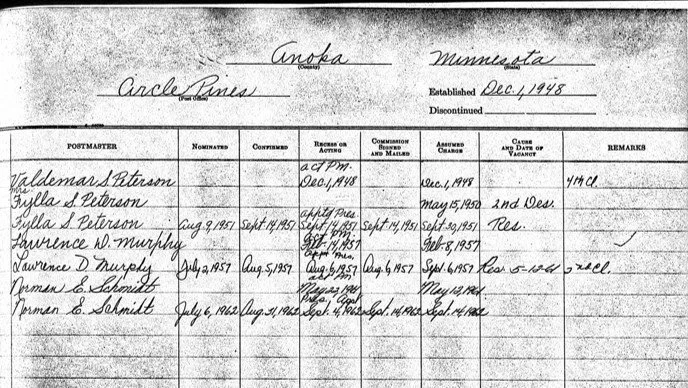 Anoka
(County)
Minnesota
(State)
Circle Pines
(Post Office)
Established Dec. 1, 1948
Discontinued
POSTMASTER NOMINATED CONFIRMED RECESS OR ACTING COMMISSION SIGNED AND MAILED ASSUMED CHARGE CAUSE AND DATE OF VACANCY REMARKS
act PM.
Valdemar S. Peterson Dec. 1, 1948 Dec. 1, 1948 4th Cl.
Mrs
Fylla S. Peterson May 15, 1950 2nd Des.
apptd Pres.
Fylla S. Peterson Aug. 9, 1951 Sept. 14, 1951 Sept. 14, 1951 Sept. 14, 1951 Sept. 30, 1951 Res.
act PM.
Lawrence D. Murphy Feb. 14, 1957 Feb. 8, 1957
appt Pres.
Lawrence D. Murphy July 2, 1957 Aug. 5, 1957 Aug. 6, 1957 Aug. 6, 1957 Sept. 6, 1957 Res. 5-12-61 2nd Cl.
Norman E. Schmidt May 22, 1961 May 12, 1961
Pres. Appt
Norman E. Schmidt July 6, 1962 Aug. 31, 1962 Sept. 4, 1962 Sept. 14, 1962 Sept. 14, 1962